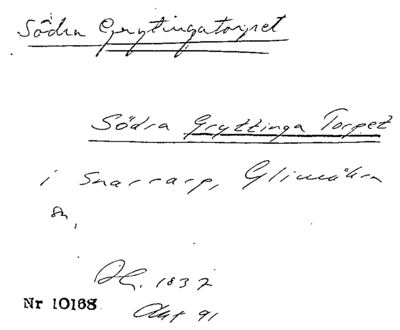 Södra Grytingatorpet
Södra Gryttinga Torpet
i Snarrarp, Glimåkra
sn,
1837
Nr 10168
Akt 91